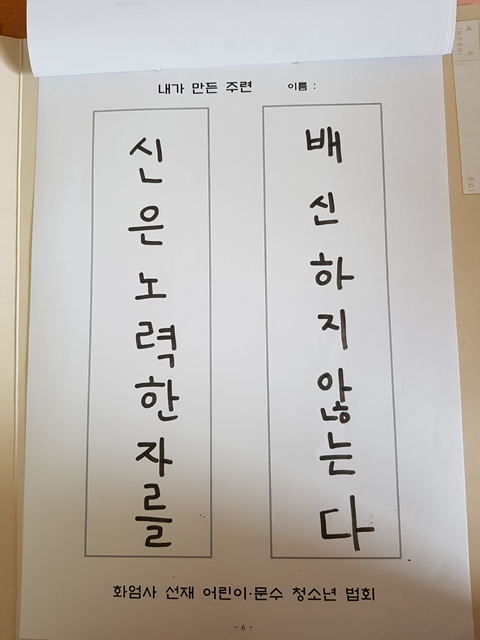 내가 만든 주련 이름 :
신은노력한자를
배신하지않는다
화엄사 선재 어린이·문수 청소년 법회
- 6 -